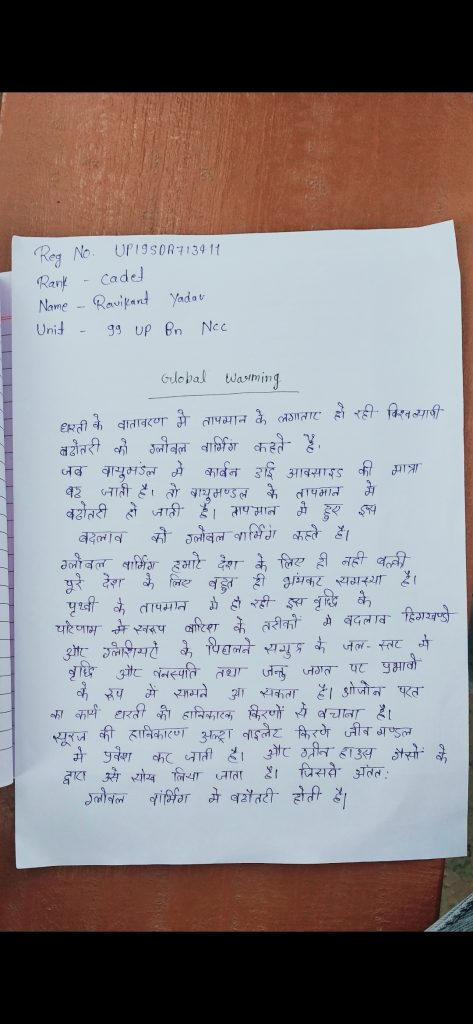 Reg No. UP19SDA713411
Rank - Cadet
Name - Ravikant Yadav
Unit - 99 UP Bn Ncc
Global Warming
धरती के वातावरण मे तापमान के लगातार हो रही विश्वव्यापी
बढोतरी को ग्लोवल वार्मिंग कहते है.
जब वायुमंडल मे कार्बन डाई आक्साइड की मात्रा
बढ़ जाती है। तो वायुमण्डल के तापमान मे
बढोतरी हो जाती है। तापमान मे हुए इस
बदलाव को ग्लोवल वार्मिंग कहते है।
ग्लोवल वार्मिंग हमारे देश के लिए ही नही वल्की
पुरे देश के लिए बहुत ही भंयकर समस्या है।
पृथ्वी के तापमान मे हो रही इस वृद्धि के
परिणाम मे स्वरूप बारिश के तरीकों मे बदलाव हिमखण्डो
और ग्लेशियरो के पिघलने समुद्र के जल-स्तर मे
वृद्धि और वनस्पति तथा जन्तु जगत पर प्रभावो
के रूप मे सामने आ सकता है। ओजोन परत
का कार्य धरती को हानिकारक किरणों से बचाना है।
सूरज की हानिकारण अल्ट्रा वाइलेट किरणे जीव मण्डल
मे प्रवेश कर जाती है। और ग्रीन हाउस गैसो के
द्वारा उसे सोख लिया जाता है। जिससे अंतत:
ग्लोवल वार्मिग मे बढौतरी होती है।